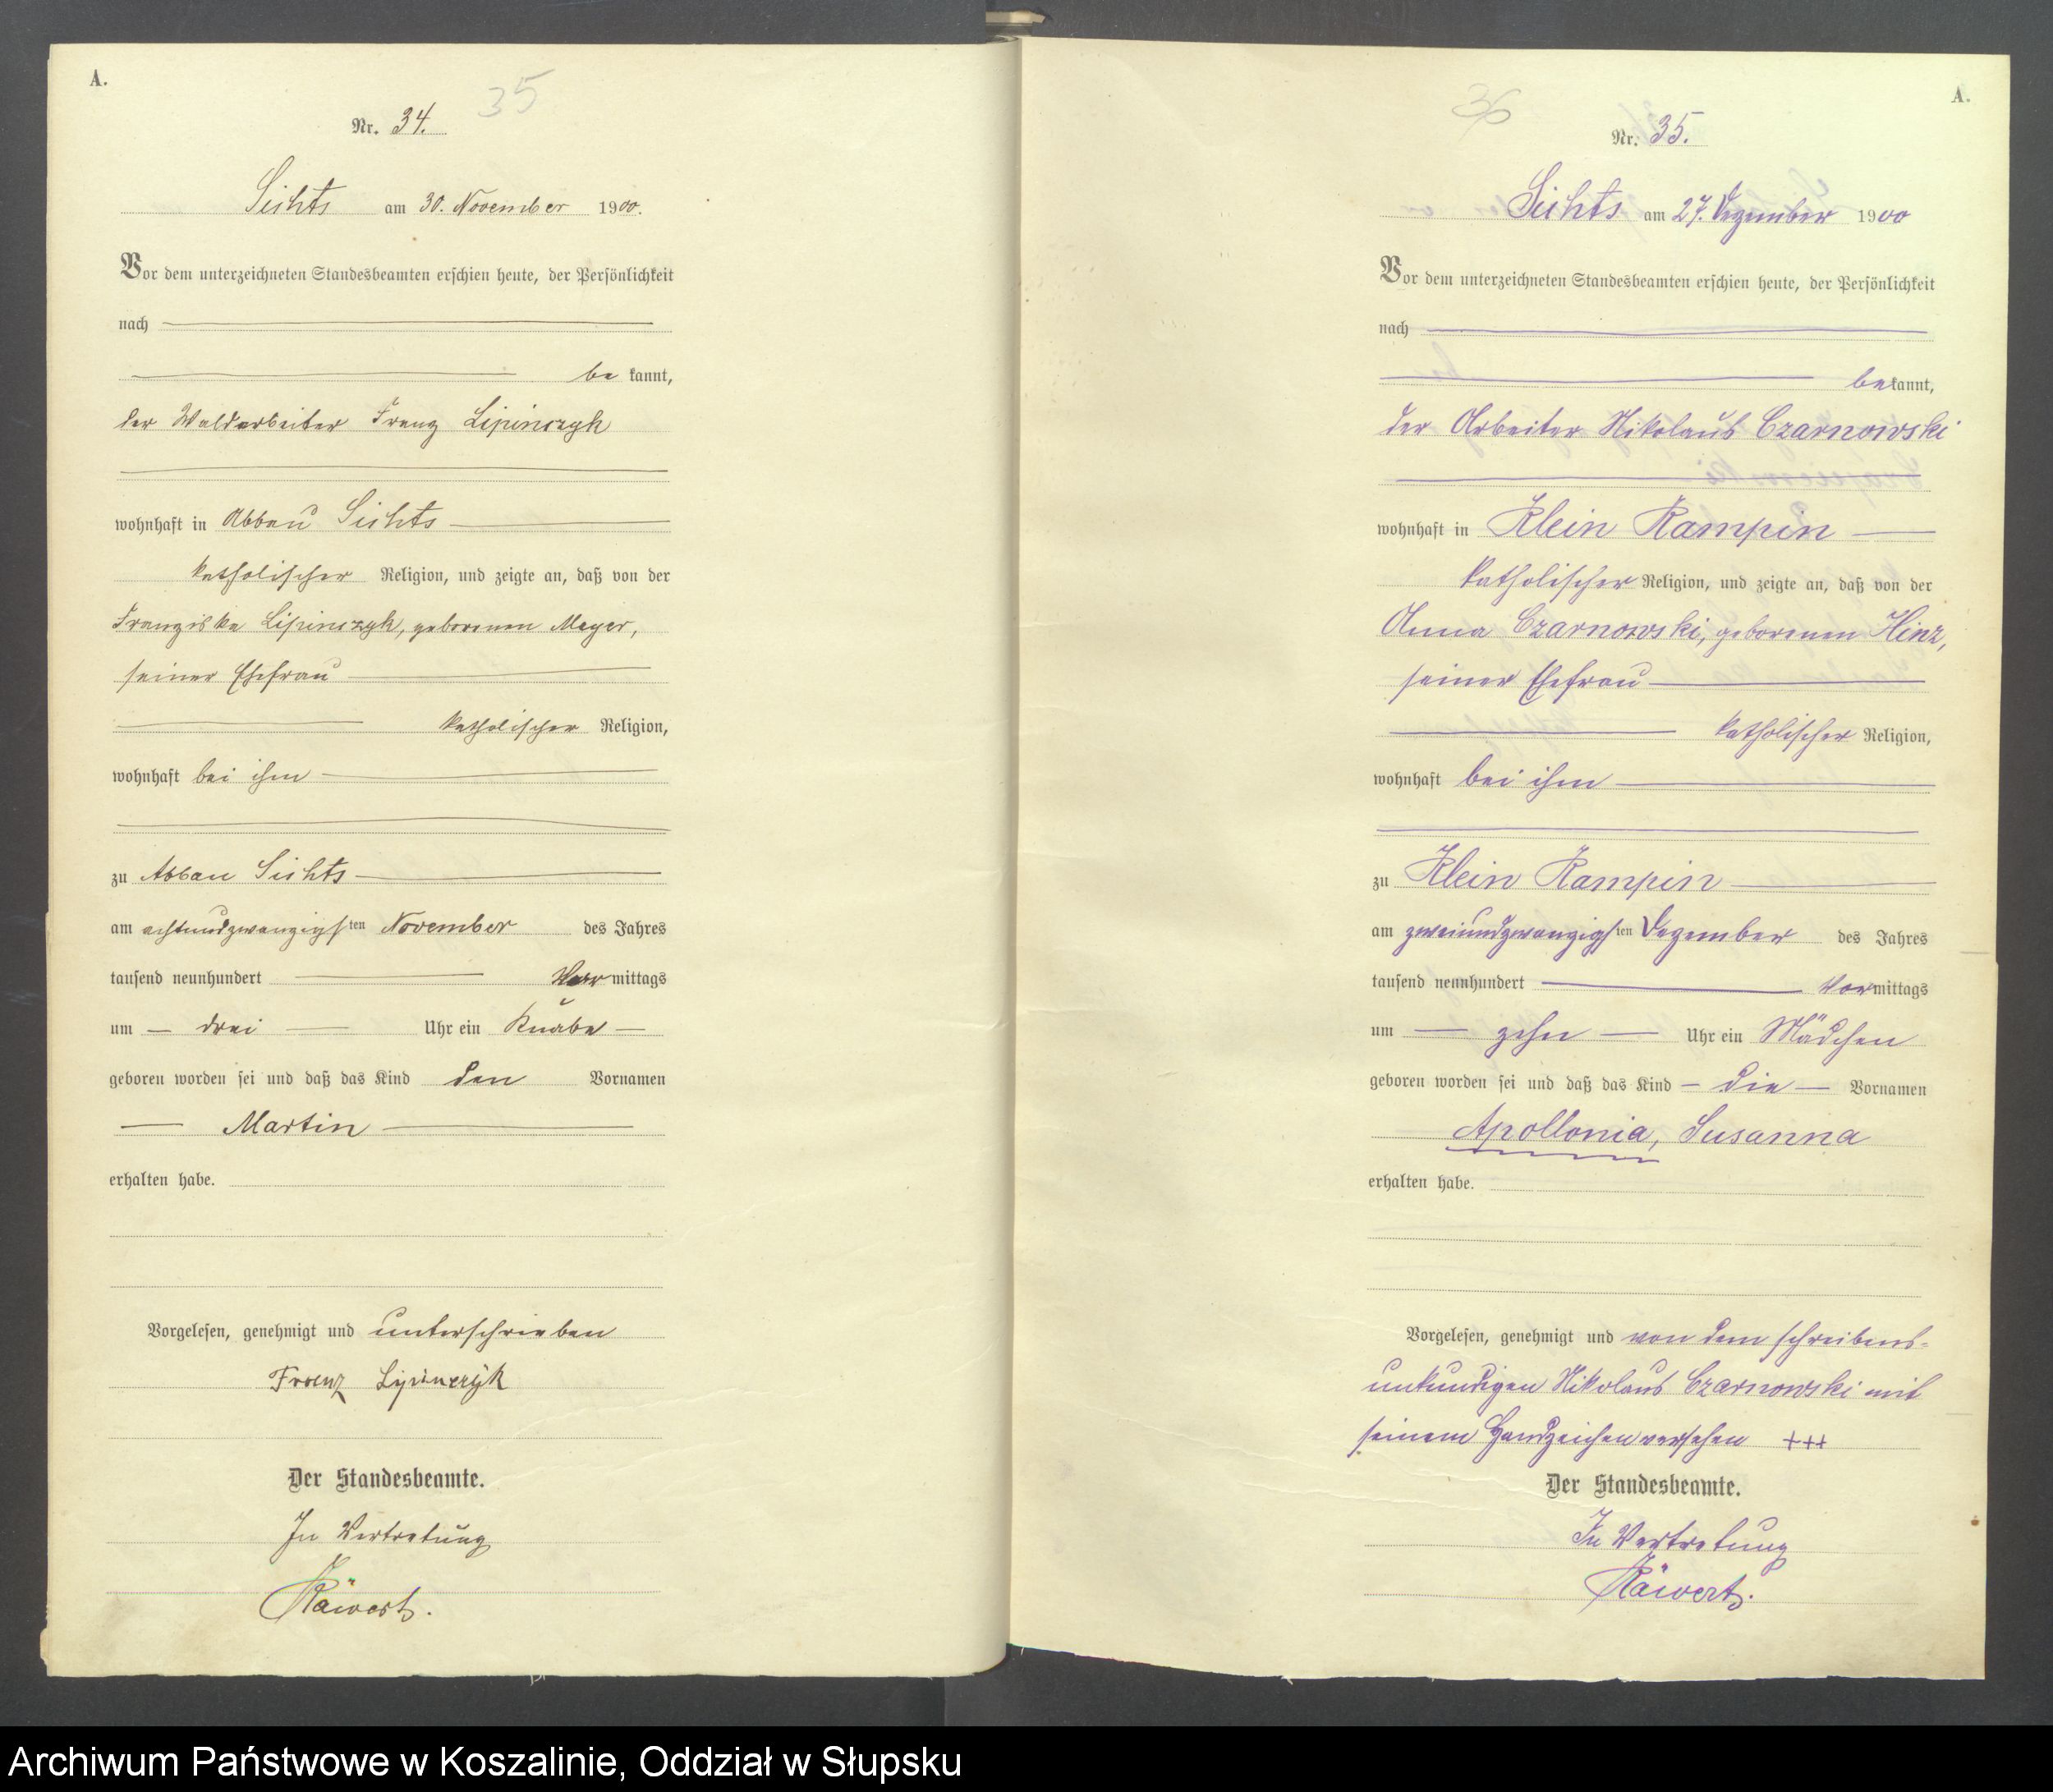 A.
35
Nr. 34.
Sichts am 30. November 1900.
Vor dem unterzeichneten Standesbeamten erschien heute, der Persönlichkeit
nach
be kannt,
der Waldarbeiter Franz Lipinczyk
wohnhaft in Abbau Sichts
katholischer Religion, und zeigte an, daß von der
Franziska Lipinczyk, geborenen Meyer,
seiner Ehefrau
katholischer Religion,
wohnhaft bei ihm
zu Abbau Sichts
am achtundzwanzigsten November des Jahres
tausend neunhundert mittags
um drei Uhr ein Knabe
geboren worden sei und daß das Kind den Vornamen
Martin
erhalten habe.
Vorgelesen, genehmigt und unterschrieben
Franz Lipinczyk
Der Standesbeamte.
In Vertretung
Räwert.
36
A.
Nr. 35.
Sichts am 27. Dezember 1900
Vor dem unterzeichneten Standesbeamten erschien heute, der Persönlichkeit
nach
bekannt,
der Arbeiter Nikolaus Czarnowski
wohnhaft in Klein Rampin
katholischer Religion, und zeigte an, daß von der
Anna Czarnowski, geborenen Hinz,
seiner Ehefrau
katholischer Religion,
wohnhaft bei ihm
zu Klein Rampin
am zweiundzwanzigsten Dezember des Jahres
tausend neunhundert Vormittags
um zehn Uhr ein Mädchen
geboren worden sei und daß das Kind die Vornamen
Apollonia, Susanna
erhalten habe.
Vorgelesen, genehmigt und von dem schreibens-
unkundigen Nikolaus Czarnowski mit
seinem Handzeichen versehen +++
Der Standesbeamte.
In Vertretung
Räwert.
Archiwum Państwowe w Koszalinie, Oddział w Słupsku